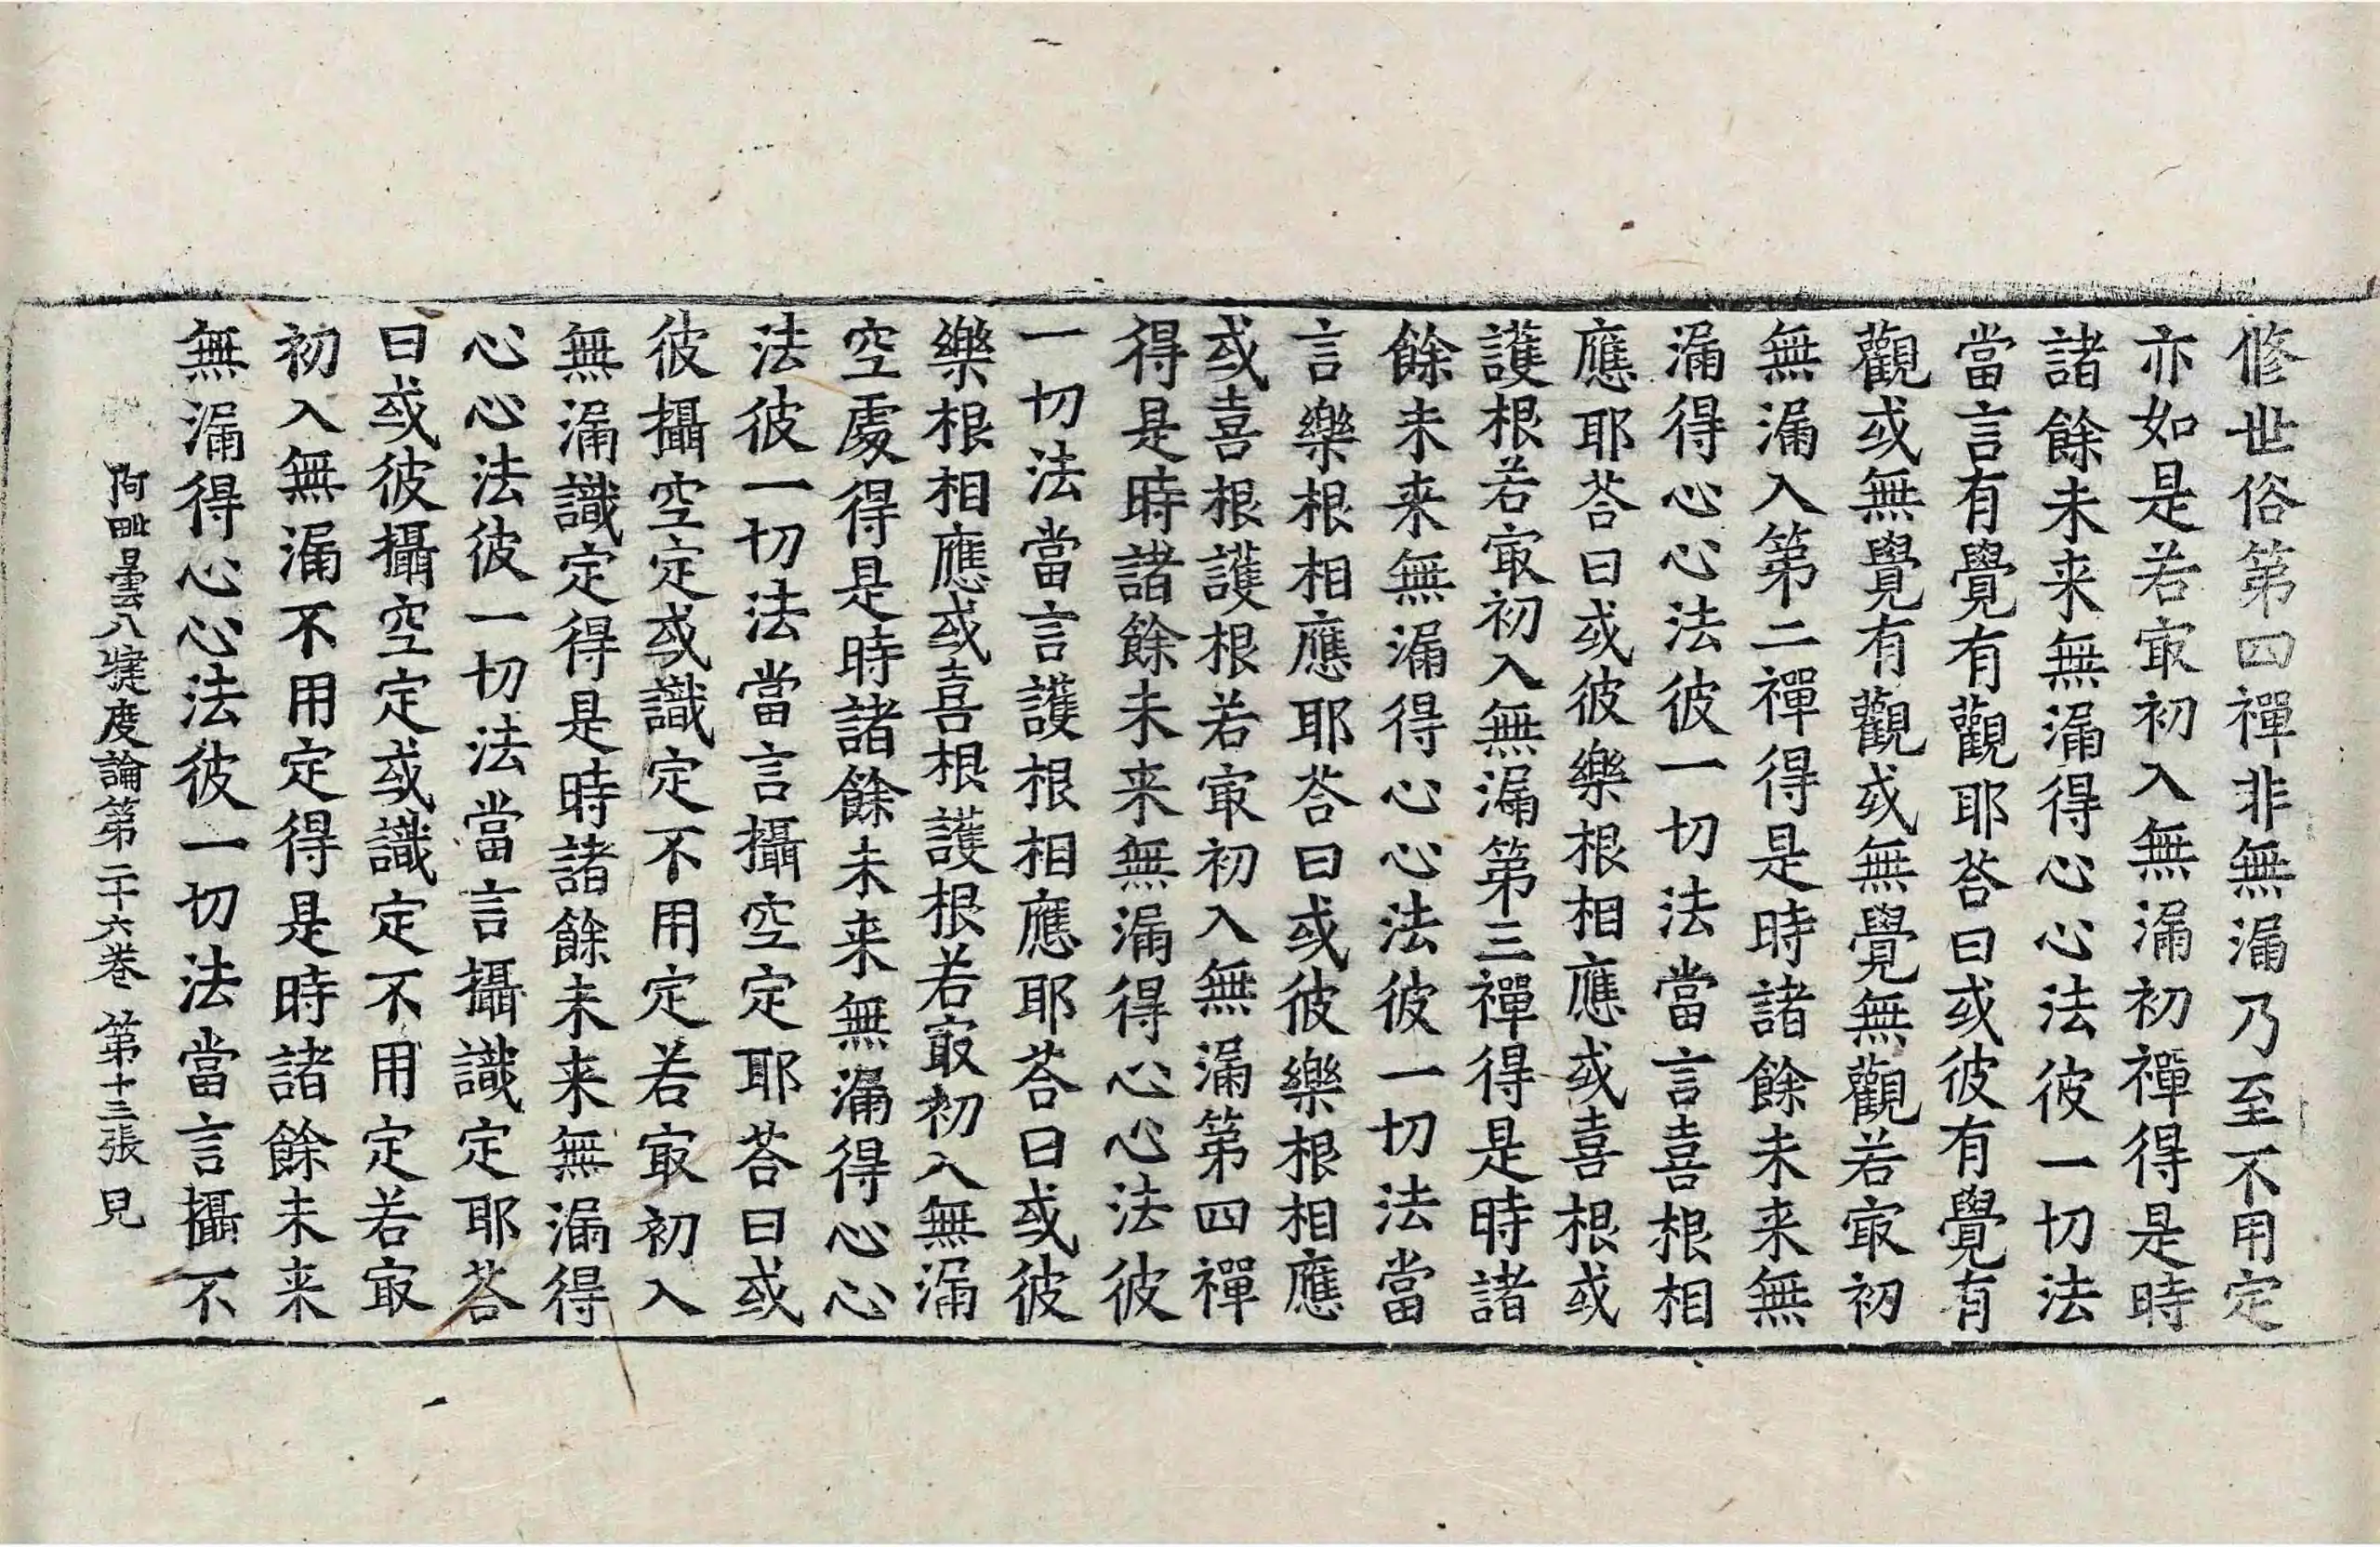 修世俗第四禪非無漏乃至不用定
亦如是若㝡初入無漏初禪得是時
諸餘未来無漏得心心法彼一切法
當言有覺有觀耶荅曰或彼有覺有
觀或無覺有觀或無覺無觀若㝡初
無漏入第二禪得是時諸餘未来無
漏得心心法彼一切法當言喜根相
應耶荅曰或彼樂根相應或喜根或
護根若㝡初入無漏第三禪得是時諸
餘未来無漏得心心法彼一切法當
言樂根相應耶荅曰或彼樂根相應
或喜根護根若㝡初入無漏第四禪
得是時諸餘未来無漏得心心法彼
一切法當言護根相應耶荅曰或彼
樂根相應或喜根護根若㝡初入無漏
空處得是時諸餘未来無漏得心心
法彼一切法當言攝空定耶荅曰或
彼攝空定或識定不用定若㝡初入
無漏識定得是時諸餘未来無漏得
心心法彼一切法當言攝識定耶荅
曰或彼攝空定或識定不用定若㝡
初入無漏不用定得是時諸餘未来
無漏得心心法彼一切法當言攝不
阿毗曇八犍度論第二十六卷 第十三張 皃